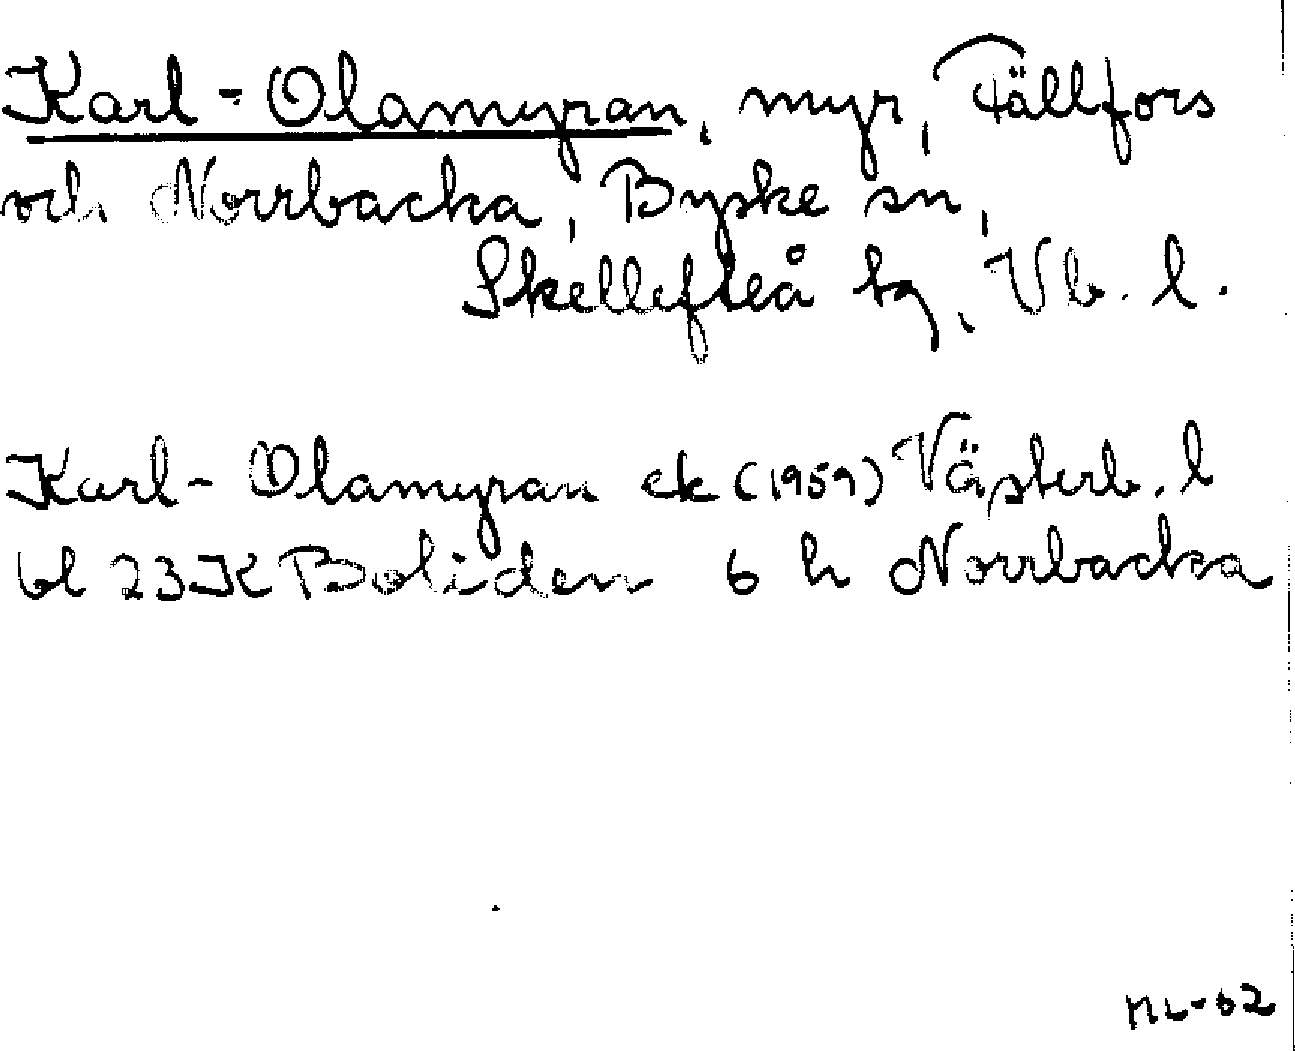 Karl-Olamyran, myr, Fällfors
och Norrbacka, Byske sn,
Skellefteå tg, Vb. l.
Karl-Olamyran ek (1959) Västerb. l
bl 23K Boliden 6 h Norrbacka
ML-62